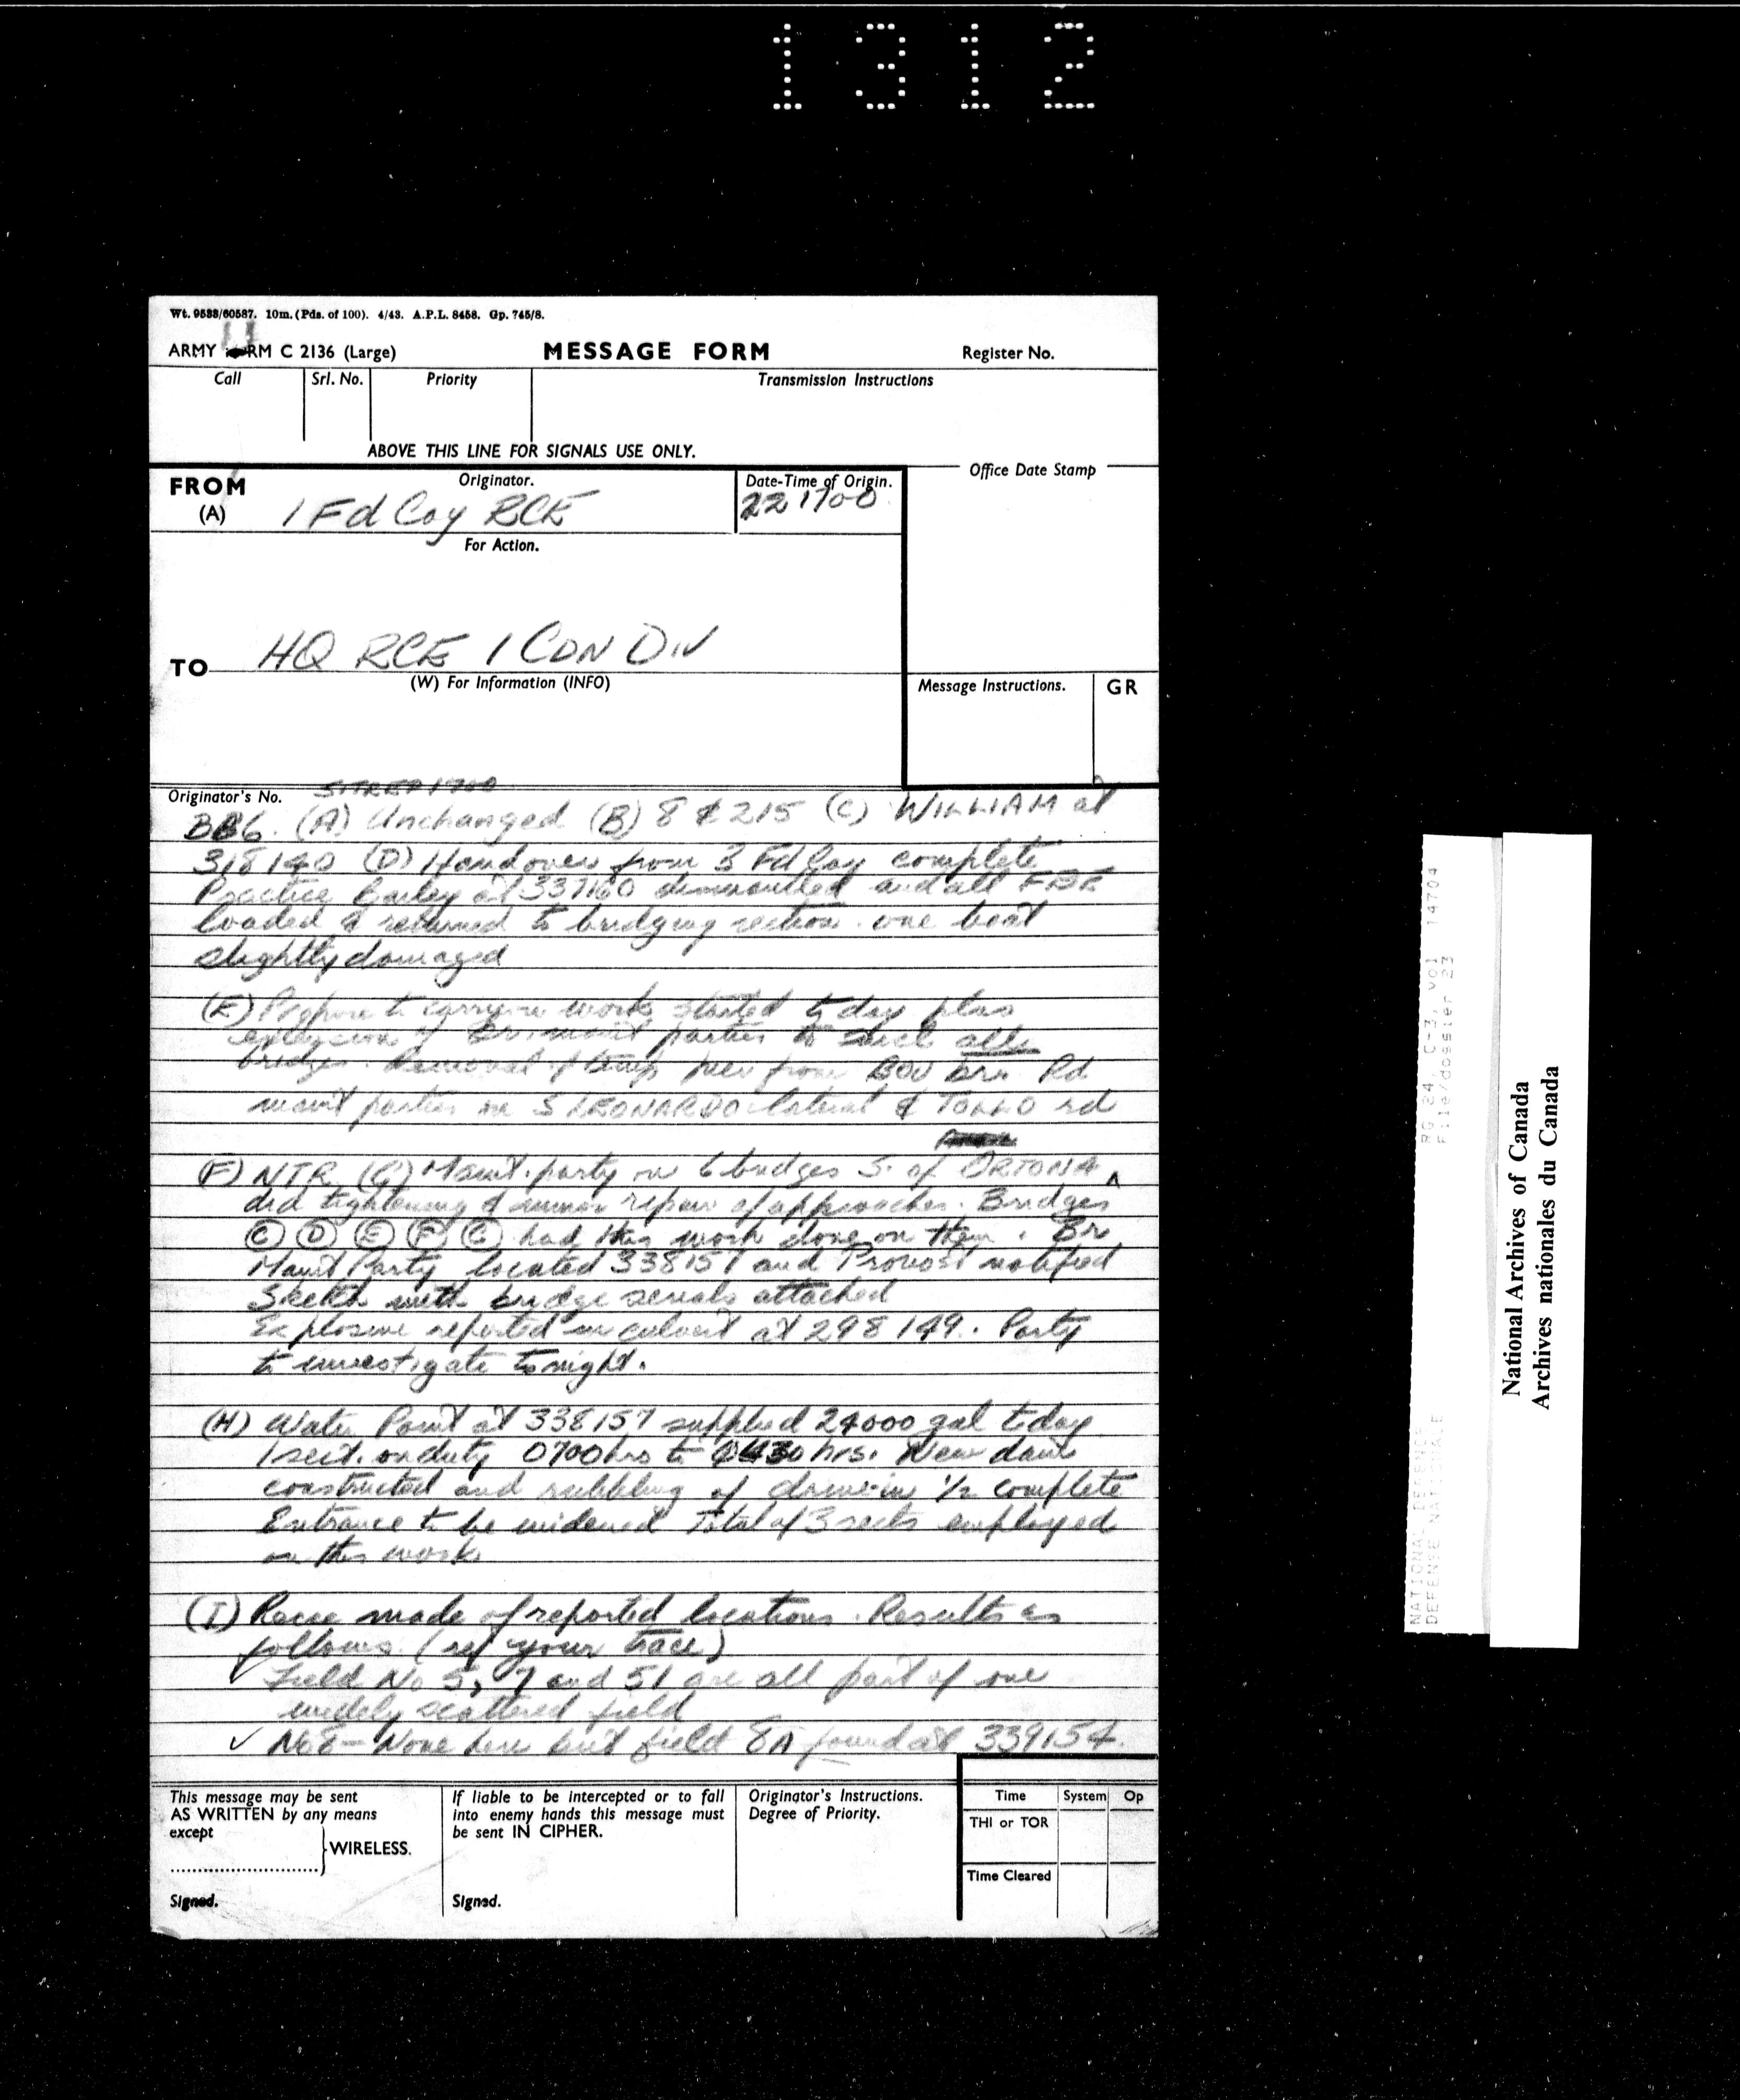 1312
Wt. 9533/60587. 10m. (Pds. of 100). 4/43. A.P.L. 8458. Gp. 745/8.
ARMY RM C 2136 (Large) MESSAGE FORM Register No.
Call Srl. No. Priority Transmission Instructions
ABOVE THIS LINE FOR SIGNALS USE ONLY.
Office Date Stamp
FROM (A) Originator. Date-Time of Origin.
1 Fd Coy RCE 221700
For Action.
TO HQ RCE 1 CDN DIV
(W) For Information (INFO)
Message Instructions. GR
SITREP 1700
Originator's No.
BB6. (A) Unchanged (B) 8 & 215 (C) WILLIAM at
318140 (D) Handover from 3 Fd Coy complete
Practice Bailey at 337160 dismantled and all FBE
loaded & returned to bridging section. one boat
slightly damaged
(E) Propose to carry on work started today plus
of Br. maint parties to all
bridges. Removal of from BOV brs. Rd
maint parties on S LEONARDO lateral & TOLLO rd
(F) NTR (G) Maint. party on 6 bridges S. of ORTONA
did tightening & minor repair of approaches. Bridges
C D E F G had this work done on them. Br
Maint Party located 338157 and Provost notified
Sketch with bridge serials attached
Explosive reported in culvert at 298149. Party
to investigate tonight.
(H) Water Point at 338157 supplied 24000 gal today
1 sect. on duty 0700 hrs to hrs. New dam
constructed and rubbling of drive-in 1/2 complete
Entrance to be widened Total of 3 sects employed
on this work
(I) Recce made of reported locations. Results as
follows (ref your trace)
Field No 5, 7 and 51 are all part of one
widely scattered field
✓ No 8 - None here but field 8A found at 339154.
This message may be sent
AS WRITTEN by any means
except
WIRELESS.
Signed.
If liable to be intercepted or to fall
into enemy hands this message must
be sent IN CIPHER.
Signed.
Originator's Instructions.
Degree of Priority.
Time System Op
THI or TOR
Time Cleared
RG 24, C-3, vol 14704
File/dossier 23
NATIONAL DEFENCE
DEFENSE NATIONALE
National Archives of Canada
Archives nationales du Canada